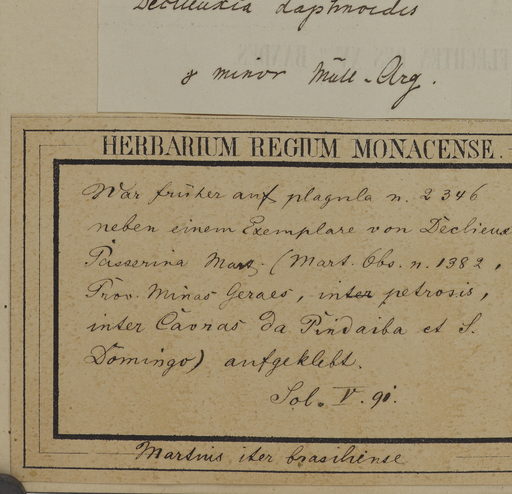 Declieuxia daphnoides
γ minor Müll-Arg.
HERBARIUM REGIUM MONACENSE.
War früher auf plagula n. 2346
neben einem Exemplare von Declieux
Passerina Mart. (Mart. Obs. n. 1382,
Prov. Minas Geraes, in petrosis,
inter Cavras da Pindaiba et S.
Domingo) aufgeklebt.
Sol. V. 91.
Martius iter brasiliense